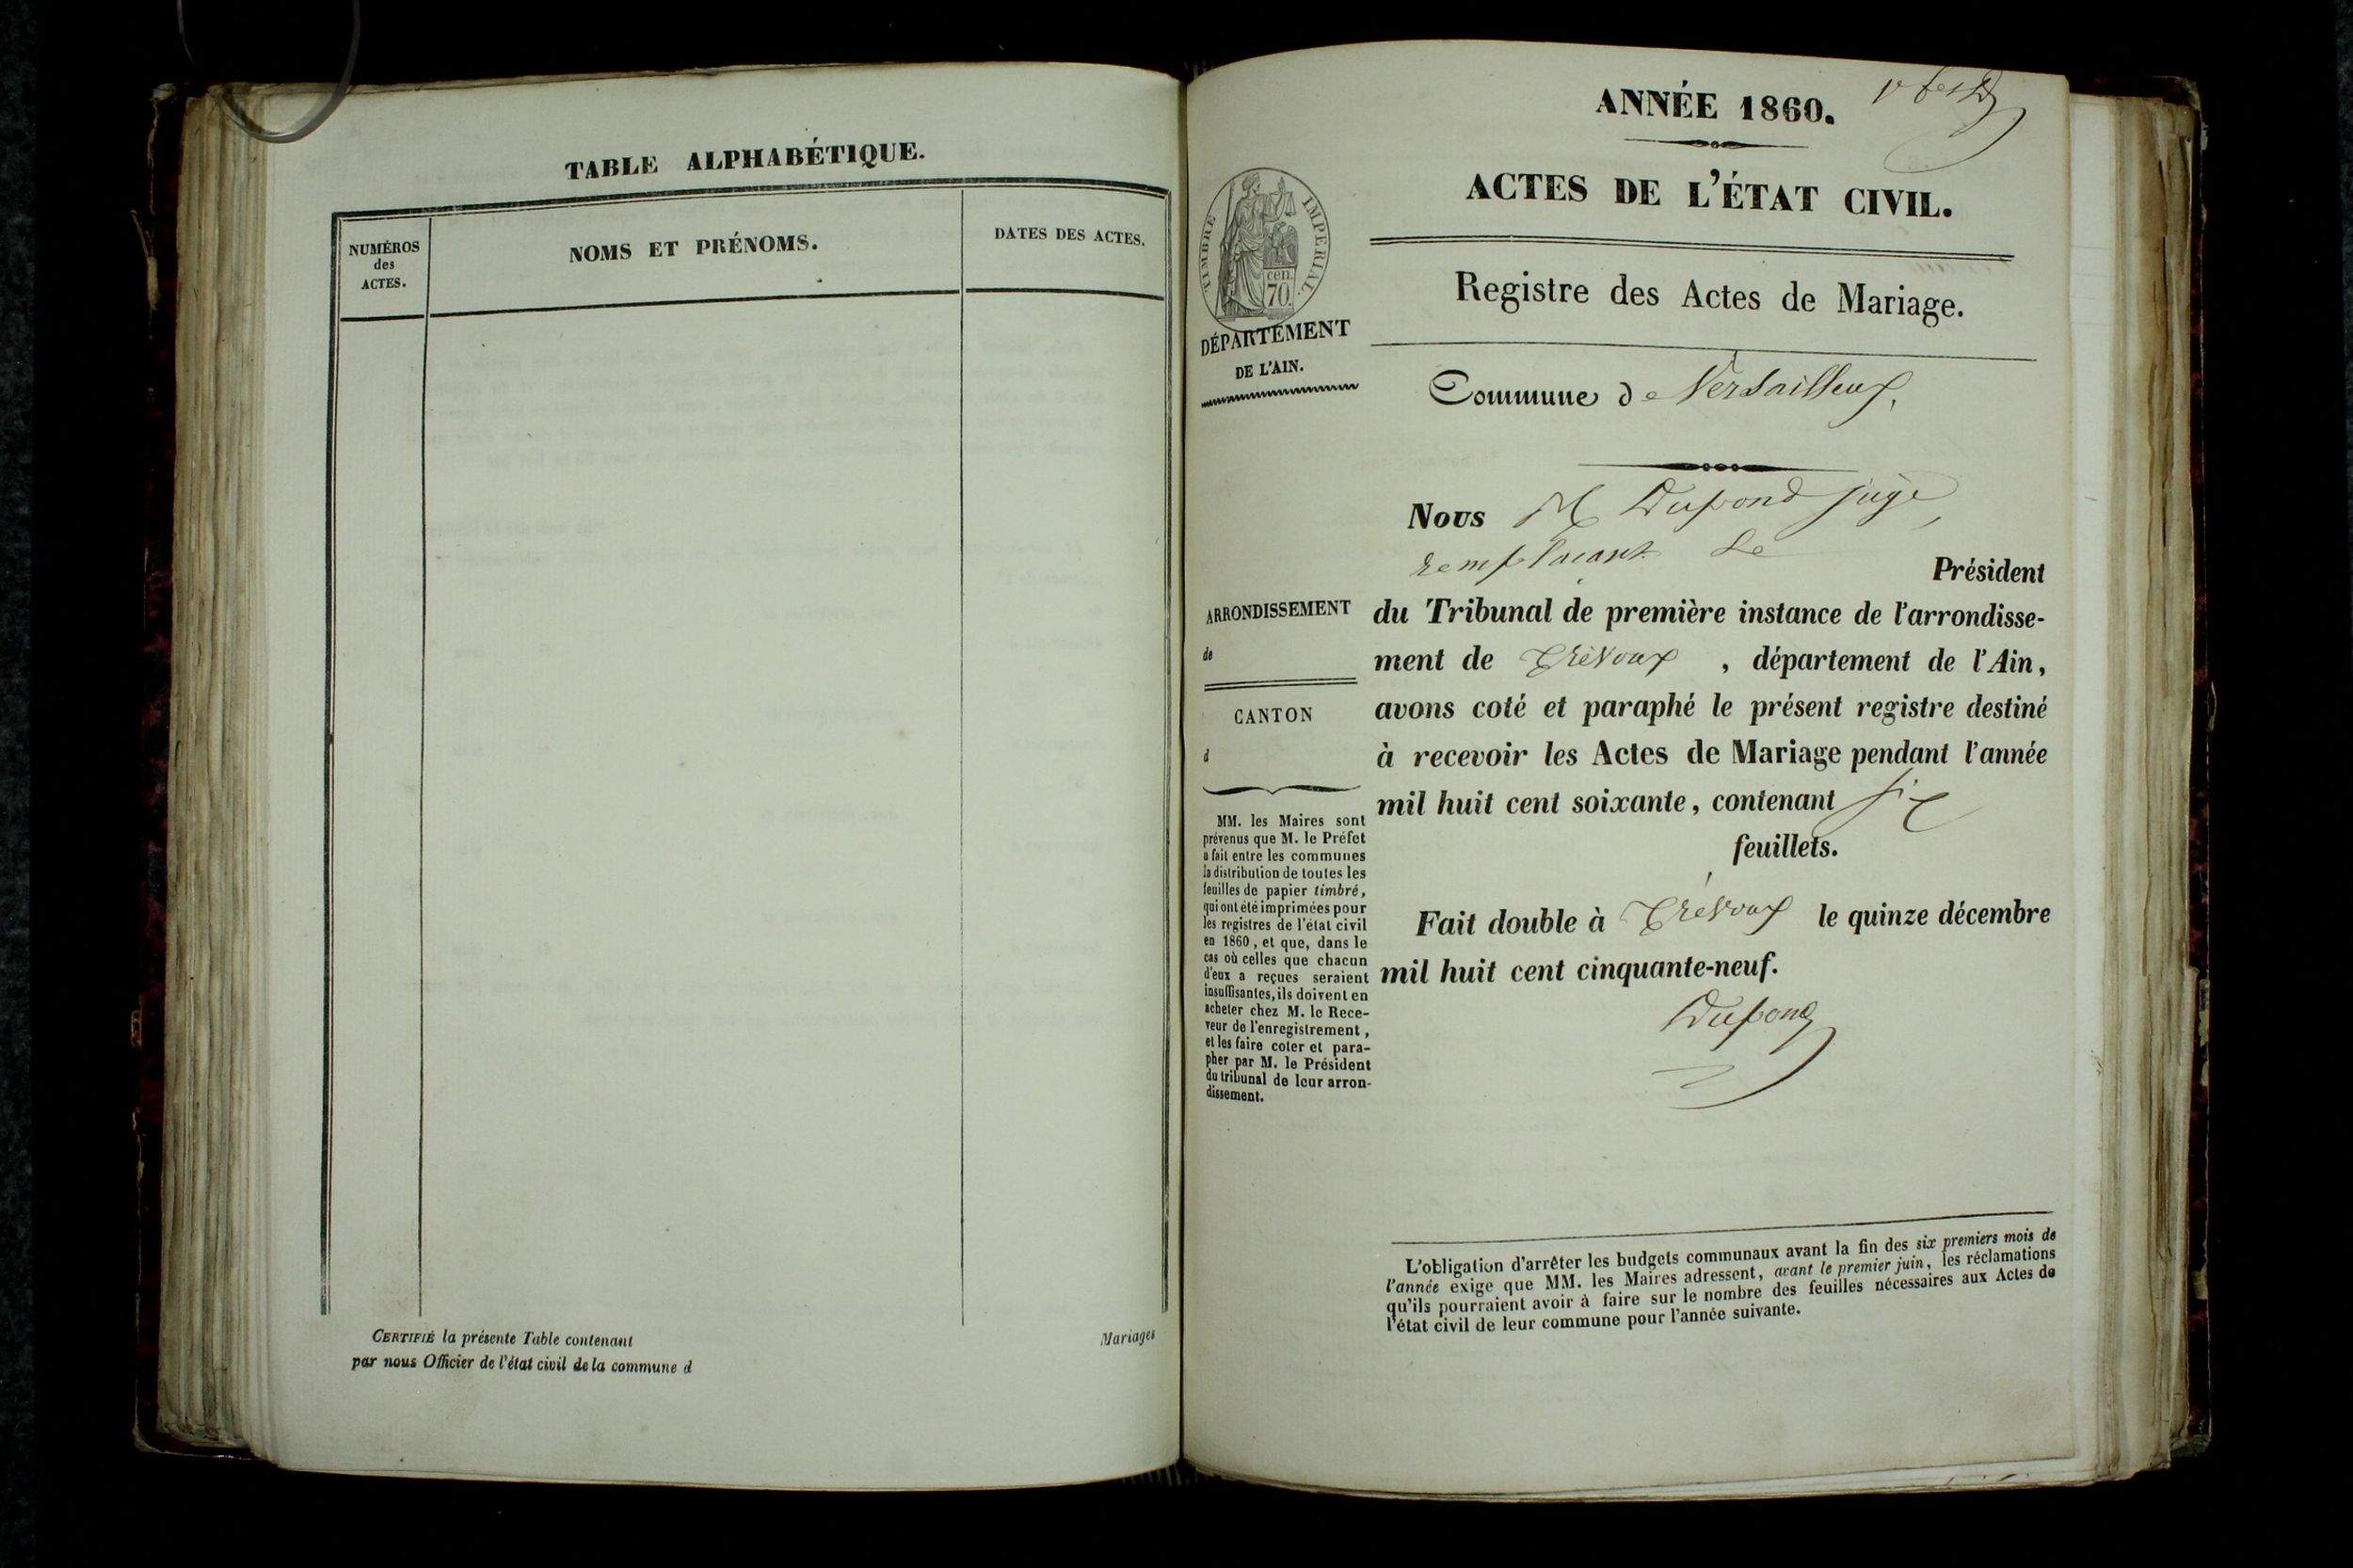 TABLE ALPHABÉTIQUE.
NUMÉROS
des
ACTES.
NOMS ET PRÉNOMS.
DATES DES ACTES.
CERTIFIÉ la présente Table contenant
Mariages
par nous Officier de l'état civil de la commune d
ANNÉE 1860.
ACTES DE L'ÉTAT CIVIL.
TIMBRE IMPERIAL
cen.
70.
Registre des Actes de Mariage.
DÉPARTEMENT
DE L'AIN.
Commune de Versailleux,
Nous M Dupond juge
remplaçant Le
Président
ARRONDISSEMENT
de
CANTON
d
du Tribunal de première instance de l'arrondisse-
ment de Trévoux , département de l'Ain,
avons coté et paraphé le présent registre destiné
à recevoir les Actes de Mariage pendant l'année
mil huit cent soixante, contenant six
feuillets.
Fait double à Trévoux le quinze décembre
mil huit cent cinquante-neuf.
Dupond
MM. les Maires sont
prévenus que M. le Préfet
a fait entre les communes
la distribution de toutes les
feuilles de papier timbré,
qui ont été imprimées pour
les registres de l'état civil
en 1860, et que, dans le
cas où celles que chacun
d'eux a reçues seraient
insuffisantes, ils doivent en
acheter chez M. le Rece-
veur de l'enregistrement,
et les faire coter et para-
pher par M. le Président
du tribunal de leur arron-
dissement.
L'obligation d'arrêter les budgets communaux avant la fin des six premiers mois de
l'année exige que MM. les Maires adressent, avant le premier juin, les réclamations
qu'ils pourraient avoir à faire sur le nombre des feuilles nécessaires aux Actes de
l'état civil de leur commune pour l'année suivante.